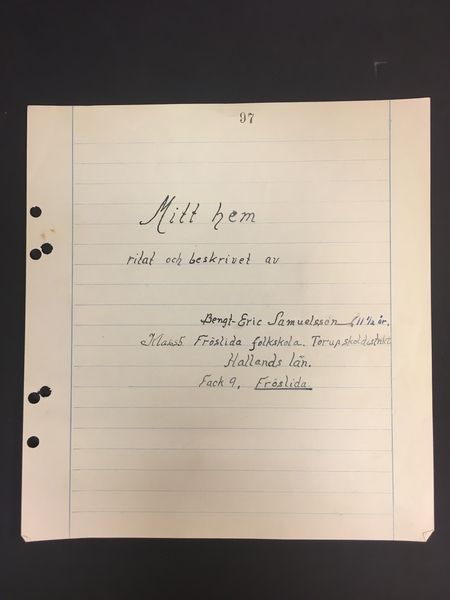 97
Mitt hem
ritat och beskrivet av
Bengt-Eric Samuelsson 11 1/2 år.
Klass 5. Fröslida folkskola. Torup skoldistrikt
Hallands län.
Fack 9, Fröslida.